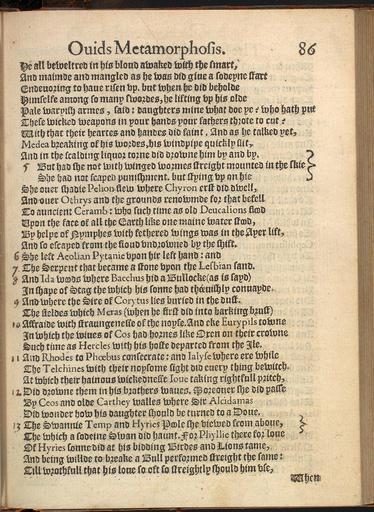 Ouids Metamorphosis. 86
He all beweltred in his bloud awaked with the smart,
And maimde and mangled as he was did giue a sodeyne start
Endeuoring to haue risen vp. but when he did beholde
Himselfe among so many swordes, he lifting vp his olde
Pale waryish armes, said: daughters mine what doe ye? who hath put
These wicked weapons in your hands your fathers throte to cut?
With that their heartes and handes did faint. And as he talked yet,
Medea breaking of his wordes, his windpipe quickly slit,
And in the scalding liquor torne did drowne him by and by.
5 But had she not with winged wormes streight mounted in the skie
She had not scaped punishment. but stying vp on hie
She ouer shadie Pelion flew where Chyron erst did dwell,
And ouer Othrys and the grounds renowmde for that befell
To auncient Ceramb: who such time as old Deucalions flood
Upon the face of all the Earth like one maine water stood,
By helpe of Nymphes with fethered wings was in the Ayer lift,
And so escaped from the floud vndrowned by the shift.
6 She left Aeolian Pytanie vpon hir left hand: and
7 The Serpent that became a stone vpon the Lesbian sand.
8 And Ida woods where Bacchus hid a Bullocke (as is sayd)
In shape of Stag the which his sonne had theeuishly conuayde.
9 And where the Sire of Corytus lies buried in the dust.
The fieldes which Meras (when he first did into barking brust)
10 Affraide with straungenesse of the noyse. And eke Eurypils towne
In which the wiues of Cos had hornes like Oxen on their crowne
Such time as Hercles with his hoste departed from the Ile.
11 And Rhodes to Phœbus consecrate: and Ialyse where ere while
The Telchines with their noysome sight did euery thing bewitch.
At which their hainous wickednesse Ioue taking rightfull pritch,
12 Did drowne them in his brothers waues. Moreouer she did passe
By Ceos and olde Carthey walles where Sir Alcidamas
Did wonder how his daughter should be turned to a Doue.
13 The Swannie Temp and Hyries Poole she viewed from aboue,
The which a sodeine Swan did haunt. For Phyllie there for loue
Of Hyries sonne did at his bidding Birdes and Lions tame,
And being willde to breake a Bull performed streight the same:
Till wrothfull that his loue so oft so streightly should him vse,
When